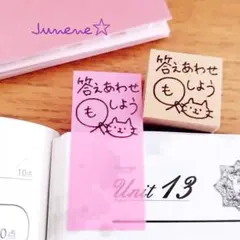 Junene☆
答えあわせ
しよう
も
答えあわせ
しよう
も
10点
0点
Unit 13